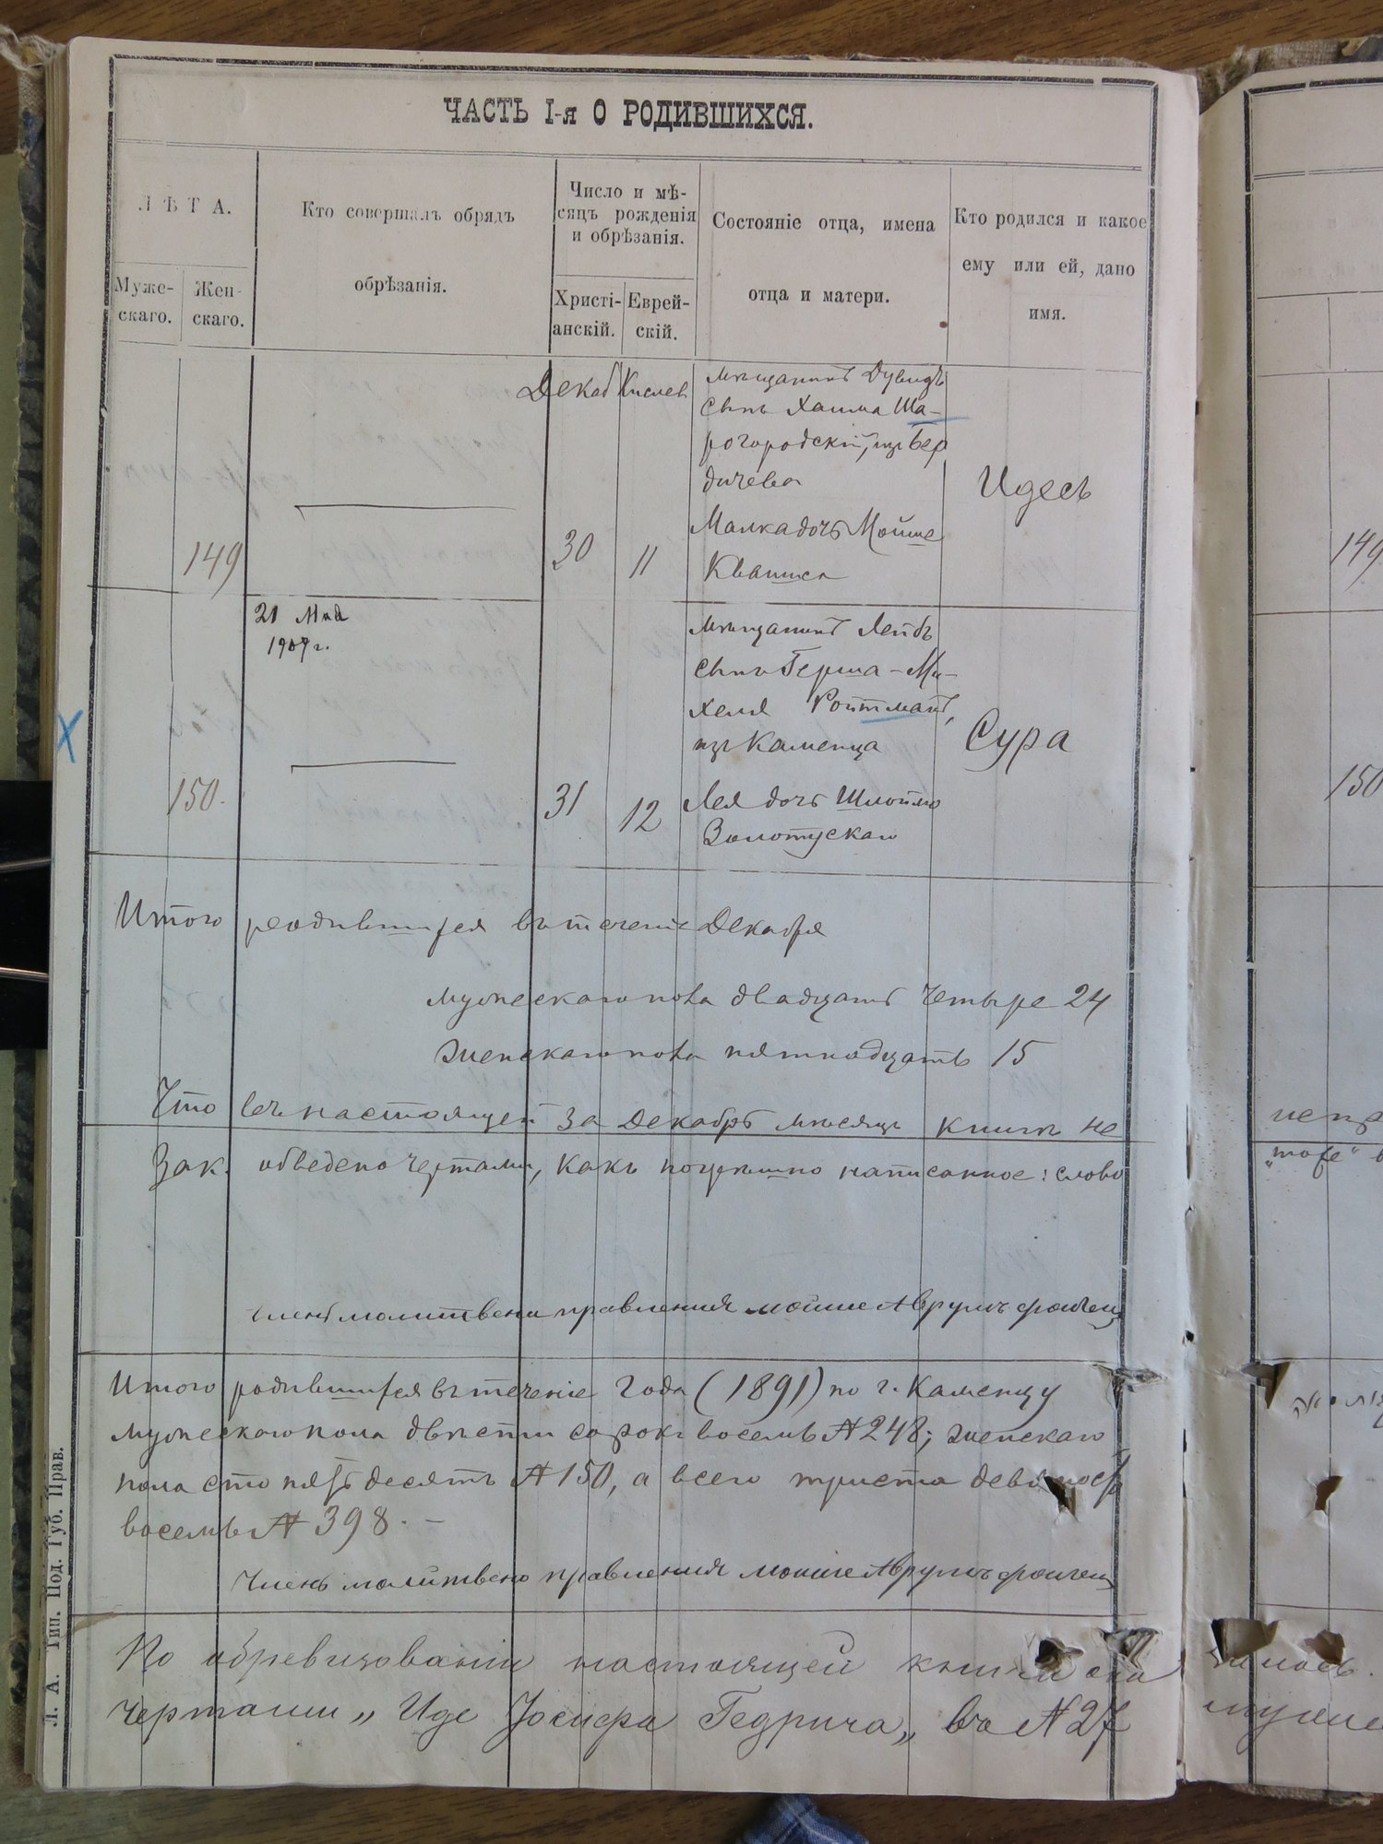 ЧАСТЬ I-я О РОДИВШИХСЯ.
ЛѢТА.
Муже-
скаго.
Жен-
скаго.
Кто совершалъ обрядъ
обрѣзанія.
Число и мѣ-
сяцъ рожденія
и обрѣзанія.
Христі-
анскій.
Еврей-
скій.
Состояніе отца, имена
отца и матери.
Кто родился и какое
ему или ей, дано
имя.
149
Декаб
30
Кислев
11
мѣщанинъ Дувидъ
сынъ Хаима Ша-
рогородскій, изъ Бер
дичева
Малка дочь Мойше
Квашиса
Идесъ
149
21 Мая
1907 г.
150.
31
12
мѣщанинъ Лейбъ
сынъ Герша-Ми-
хеля Ройтманъ,
изъ Каменца
Лея дочь Шлоймо
Золотускаго
Сура
150
Итого родившихся въ теченіе Декабря
мужескаго пола двадцать четыре 24
женскаго пола пятнадцать 15
Что въ настоящей за Декабрь мѣсяцъ книгѣ не
Зак. обведено чертами, какъ погрѣшно написанное: слово
"тоже"
членъ молитвена правления мойше Аврумъ
Итого родившихся въ теченіе года (1891) по г. Каменцу
мужескаго пола двѣсти сорокъ восемь № 248; женскаго
пола сто пятьдесятъ № 150, а всего триста девяносто
восемь № 398. —
Членъ молитвено правления мойше Аврумъ
По обревизованіи настоящей книги
чертами „Иде Іосифа Гедрича„ въ № 27
Л. А. Тип. Под. Губ. Прав.